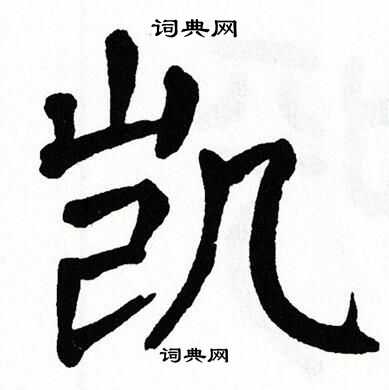 词典网
凯
词典网